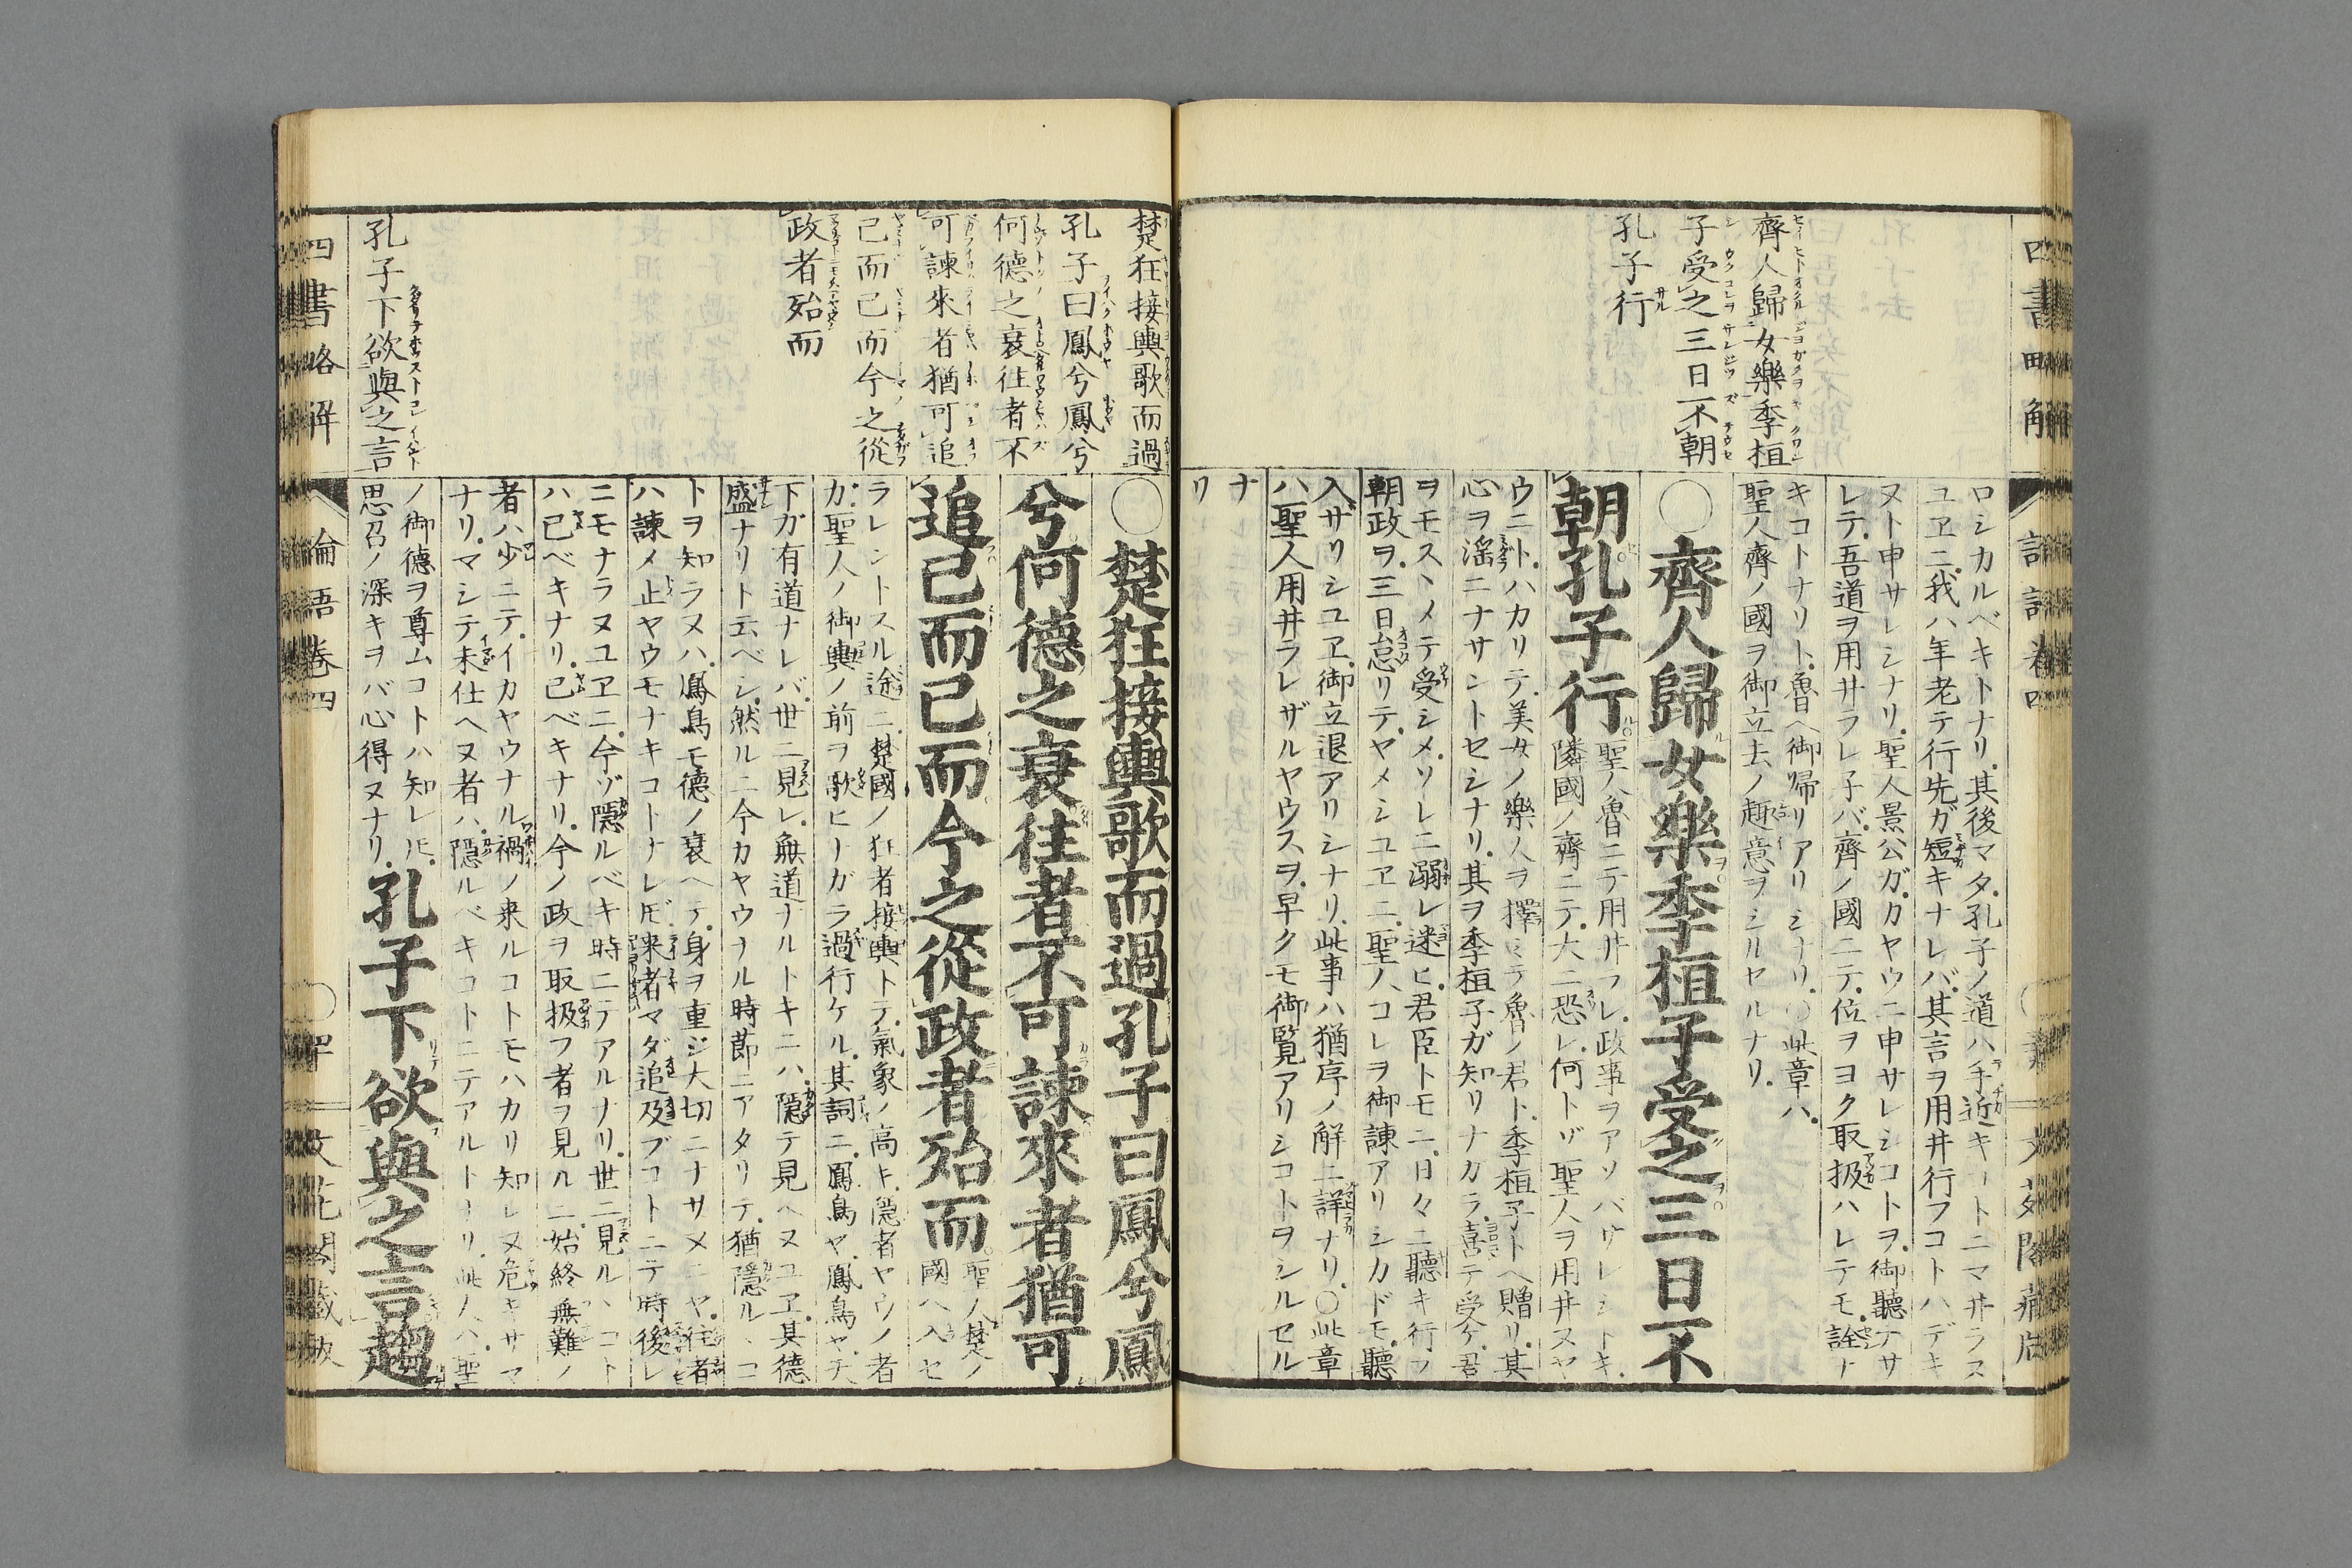 四書略解
論語卷四
齊人歸女樂季桓
子受之三日不朝
孔子行
ロシカルベキトナリ其後マタ孔子ノ道ハ手近キコトニマ井ラス
ユヱニ我ハ年老テ行先ガ短キナレバ其言ヲ用井行フコトハデキ
ヌト申サレシナリ聖人景公ガカヤウニ申サレシコトヲ御聽ナサ
レテ吾道ヲ用井ラレ子バ齊ノ國ニテ位ヲヨク取扱ハレテモ詮ナ
キコトナリト魯ヘ御帰リアリシナリ○此章ハ
聖人齊ノ國ヲ御立去ノ趣意ヲシルヤルナリ
○齊人歸女樂季桓子受之三日不
朝孔子行
聖人魯ニテ用井ラレ政事ヲアソバサレシトキ
隣國ノ齊ニテ大ニ恐レ何トゾ聖人ヲ用井ヌヤ
ウニトハカリテ美女ノ樂人ヲ擇ミテ魯ノ君ト季桓子トヘ贈リ其
心ヲ滛ニナサントセシナリ其ヲ季桓子ガ知リナカラ喜テ受ケ君
ヲモスヽメテ受シメソレニ溺レ迷ヒ君臣トモニ日々ニ聽キ行フ
朝政ヲ三日怠リテヤメシユヱニ聖人コレヲ御諫アリシカドモ聽
入サリシユヱ御立退アリシナリ此事ハ猶序ノ解ニ詳ナリ○此章
ハ聖人用井ラレザルヤウスヲ早クモ御覧アリシコトヲシルセル
ナ
リ
楚狂接輿歌而過
孔子曰鳳兮鳳兮
何德之衰往者不
可諫來者猶可追
已而已而今之從
政者殆而
孔子下欲與之言
○楚狂接輿歌而過孔子曰鳳兮鳳
兮何德之衰往者不可諫來者猶可
追已而已而今之從政者殆而
聖人楚ノ
國ヘ入セ
ラレントスル途ニ楚國ノ狂者接輿トテ氣象ノ高キ隠者ヤウノ者
カ聖人ノ御輿ノ前ヲ歌ヒナガラ過行ケル其詞ニ鳳鳥ヤ鳳鳥ヤ天
下ガ有道ナレバ世ニ見レ無道ナルトキニハ隠テ見ヘヌユヱ其德
盛ナリト云ベシ然ルニ今カヤウナル時節ニアタリテ猶隠ルヽコ
トヲ知ラヌハ鳳鳥モ德ノ衰ヘテ身ヲ重ジ大切ニナサヌニヤ往者
ハ諫メ止ヤウモナキコトナレドモ来者マダ追及ブコトニテ時後レ
ニモナラヌユヱニ今ヅ隠ルベキ時ニテアルナリ世ニ見ルヽコト
ハ已ベキナリ已ベキナリ今ノ政ヲ取扱フ者ヲ見ルニ始終無難ノ
者ハ少ニテイカヤウナル禍ノ来ルコトモハカリ知レヌ危キサマ
ナリマシテ未仕ヘヌ者ハ隠ルベキコトニテアルトナリ此人ハ聖
ノ御德ヲ尊ムコトハ知レドモ
思召ノ深キヲバ心得ヌナリ
孔子下欲與之言趨
四書略解
論語卷四